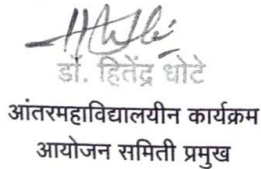 डॉ. हितेंद्र धोटे
आंतरमहाविद्यालयीन कार्यक्रम
आयोजन समिती प्रमुख